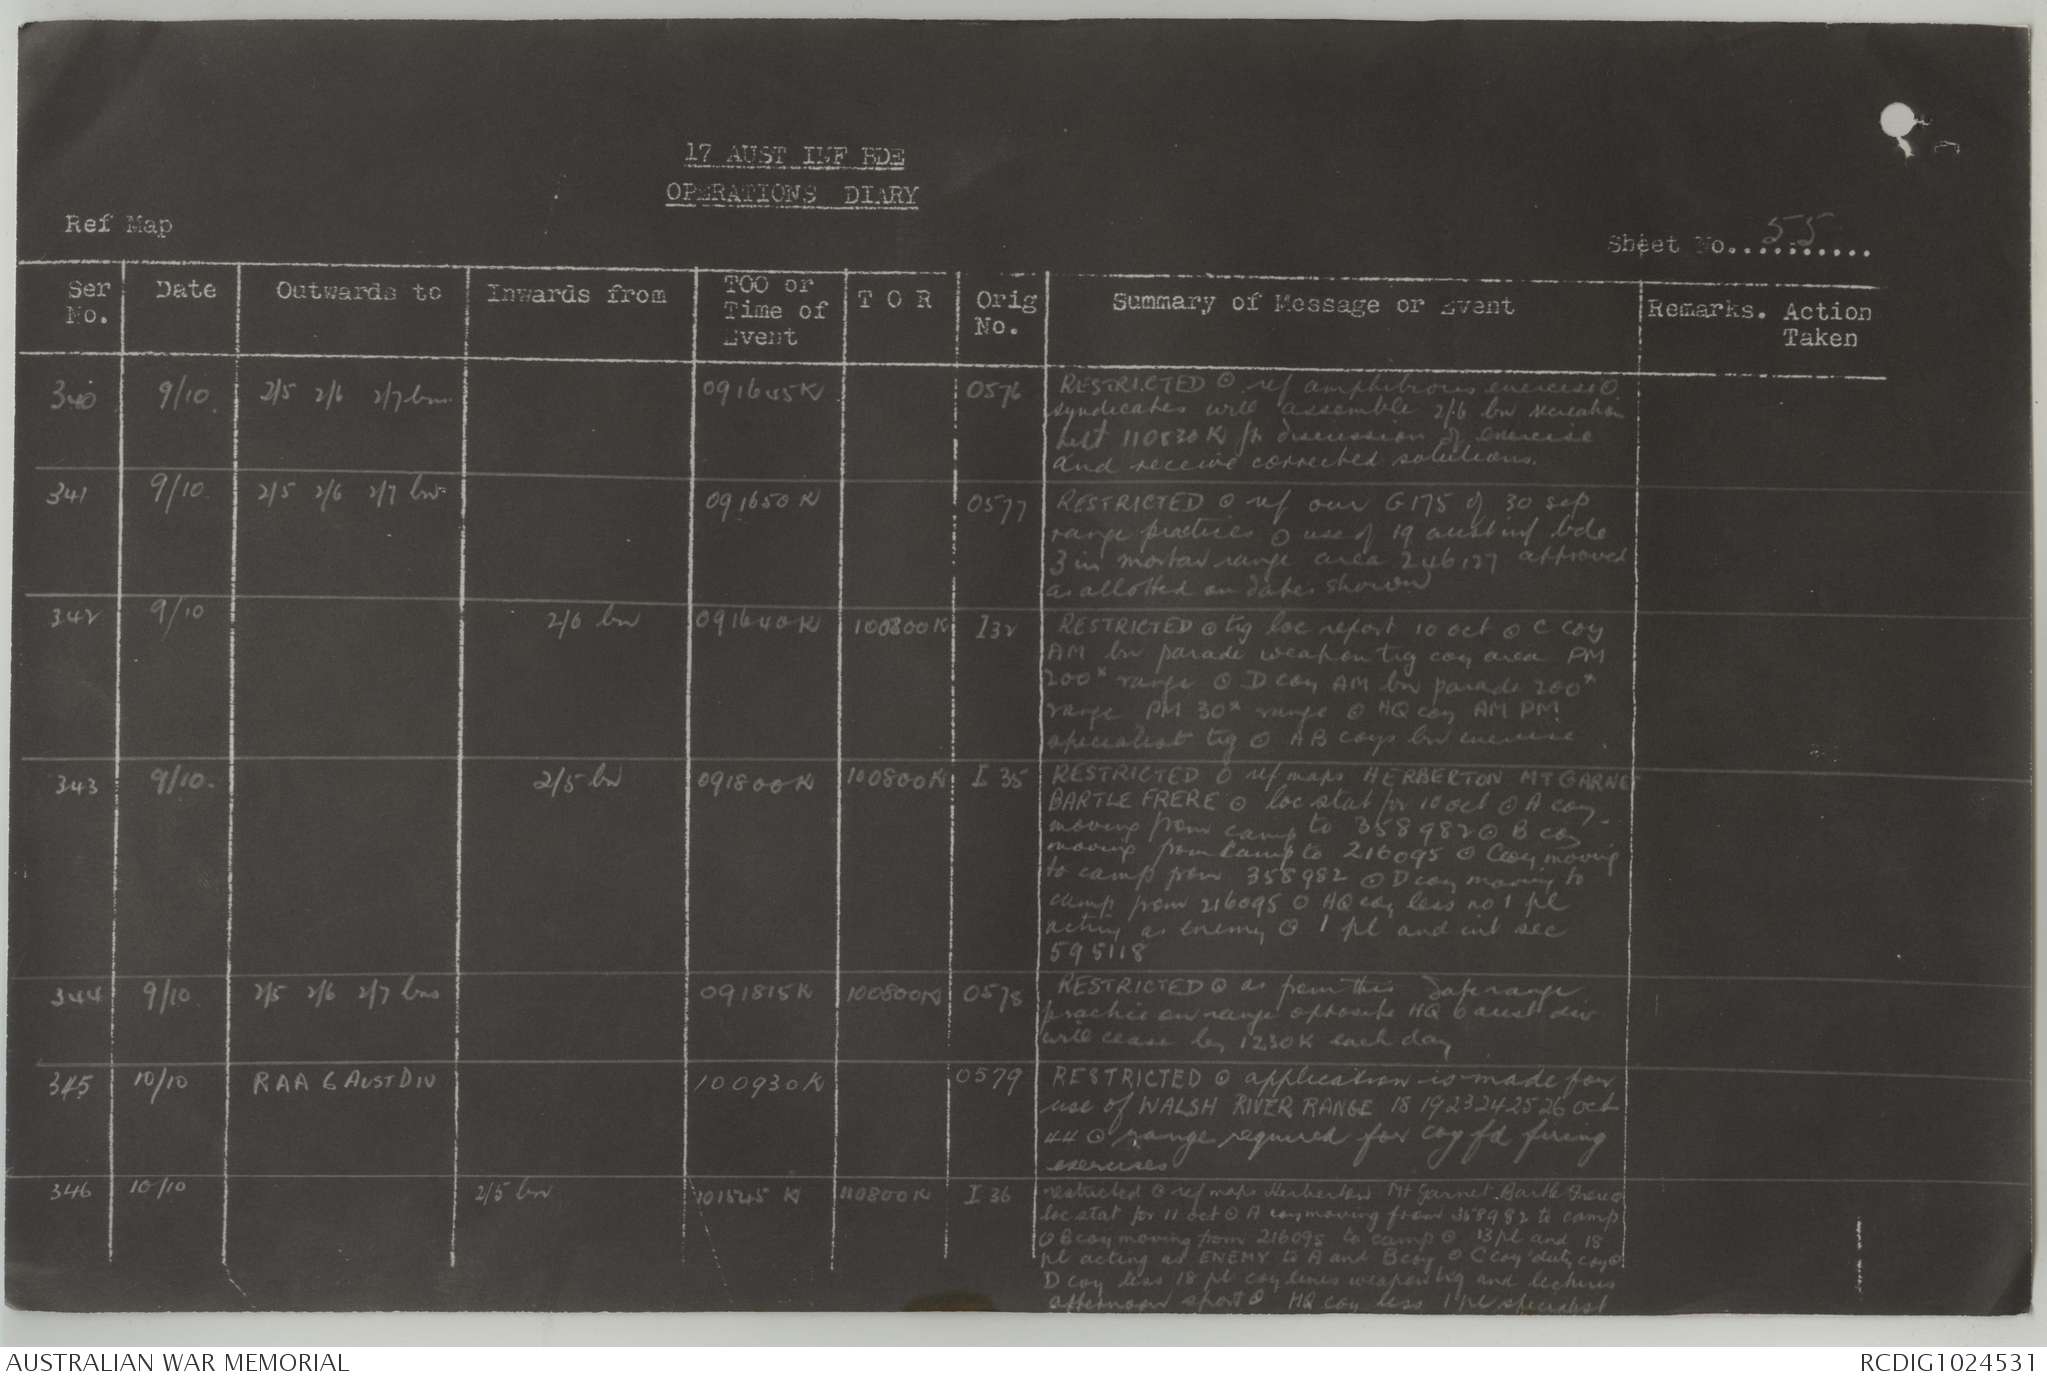 17 AUST INF BDE
OPERATIONS DIARY
Ref Map
Sheet No. 55
Ser No.
Date
Outwards to
Inwards from
TOO or Time of Event
T O R
Orig No.
Summary of Message or Event
Remarks. Action Taken
340 9/10 2/5 2/6 2/7 bns 091645K 0576 RESTRICTED ⊙ ref amphibious exercise ⊙
syndicates will assemble 2/6 bn recreation
hut 110830K for discussion of exercise
and receive corrected solutions.
341 9/10 2/5 2/6 2/7 bns 091650K 0577 RESTRICTED ⊙ ref our G175 of 30 sep
range practices ⊙ use of 19 aust inf bde
3 in mortar range area 246127 approved
as allotted on dates shown
342 9/10 2/6 bn 091640K 100800K I32 RESTRICTED ⊙ trg loc report 10 oct ⊙ C coy
AM bn parade weapon trg coy area PM
200x range ⊙ D coy AM bn parade 200x
range PM 30x range ⊙ HQ coy AM PM
specialist trg ⊙ AB coys bn exercise
343 9/10. 2/5 bn 091800K 100800K I 35 RESTRICTED ⊙ ref maps HERBERTON MT GARNET
BARTLE FRERE ⊙ loc stat for 10 oct ⊙ A coy
moving from camp to 358982 ⊙ B coy
moving from camp to 216095 ⊙ C coy moving
to camp from 358982 ⊙ D coy moving to
camp from 216095 ⊙ HQ coy less no 1 pl
acting as enemy ⊙ 1 pl and int sec
595118
344 9/10 2/5 2/6 2/7 bns 091815K 100800K 0578 RESTRICTED ⊙ as from this date range
practice on range opposite HQ 6 aust div
will cease by 1230K each day
345 10/10 RAA 6 AUST DIV 100930K 0579 RESTRICTED ⊙ application is made for
use of WALSH RIVER RANGE 18 19 23 24 25 26 oct
44 ⊙ range required for coy fd firing
exercises
346 10/10 2/5 bn 101545K 110800K I 36 restricted ⊙ ref maps Herberton Mt Garnet Bartle Frere ⊙
loc stat for 11 oct ⊙ A coy moving from 358982 to camp
⊙ B coy moving from 216095 to camp ⊙ 13 pl and 18
pl acting as ENEMY to A and B coy ⊙ C coy duty coy ⊙
D coy less 18 pl coy lines weapon trg and lectures
afternoon sport ⊙ HQ coy less 1 pl specialist
AUSTRALIAN WAR MEMORIAL
RCDIG1024531